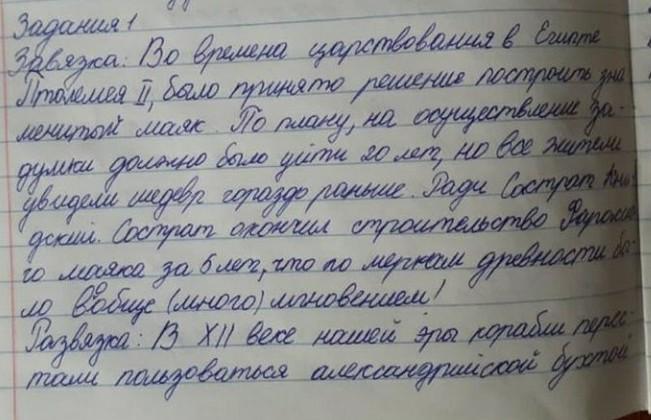 Задания 1
Завязка: Во времена царствования в Египте
Птолемея II, было принято решение построить зна
менитый маяк. По плану, на осуществление за-
думки должно было уйти 20 лет, но все жители
увидели шедевр гораздо раньше. Ради Сострат Кни
дский. Сострат окончил строительство Фаросско
го маяка за 5 лет, что по меркам древности бы
ло вообще (много) мгновением!
Развязка: В XII веке нашей эры корабли перес-
тали пользоваться александрийской бухтой